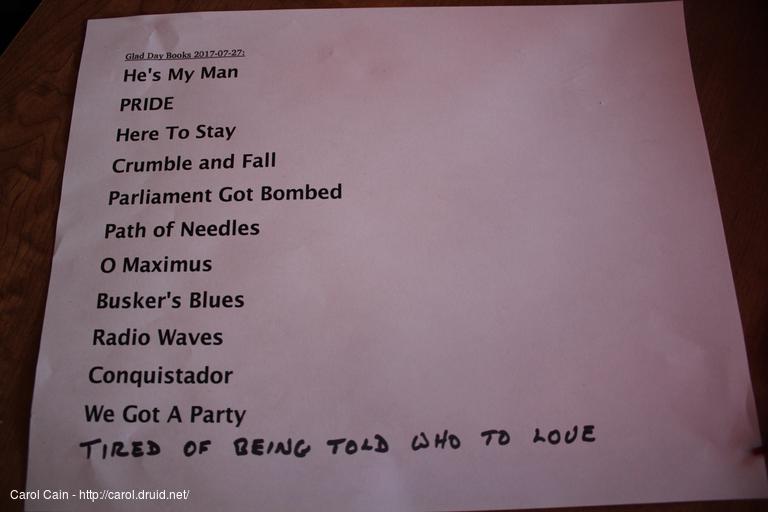 Glad Day Books 2017-07-27:
He's My Man
PRIDE
Here To Stay
Crumble and Fall
Parliament Got Bombed
Path of Needles
O Maximus
Busker's Blues
Radio Waves
Conquistador
We Got A Party
TIRED OF BEING TOLD WHO TO LOVE
Carol Cain - http://carol.druid.net/